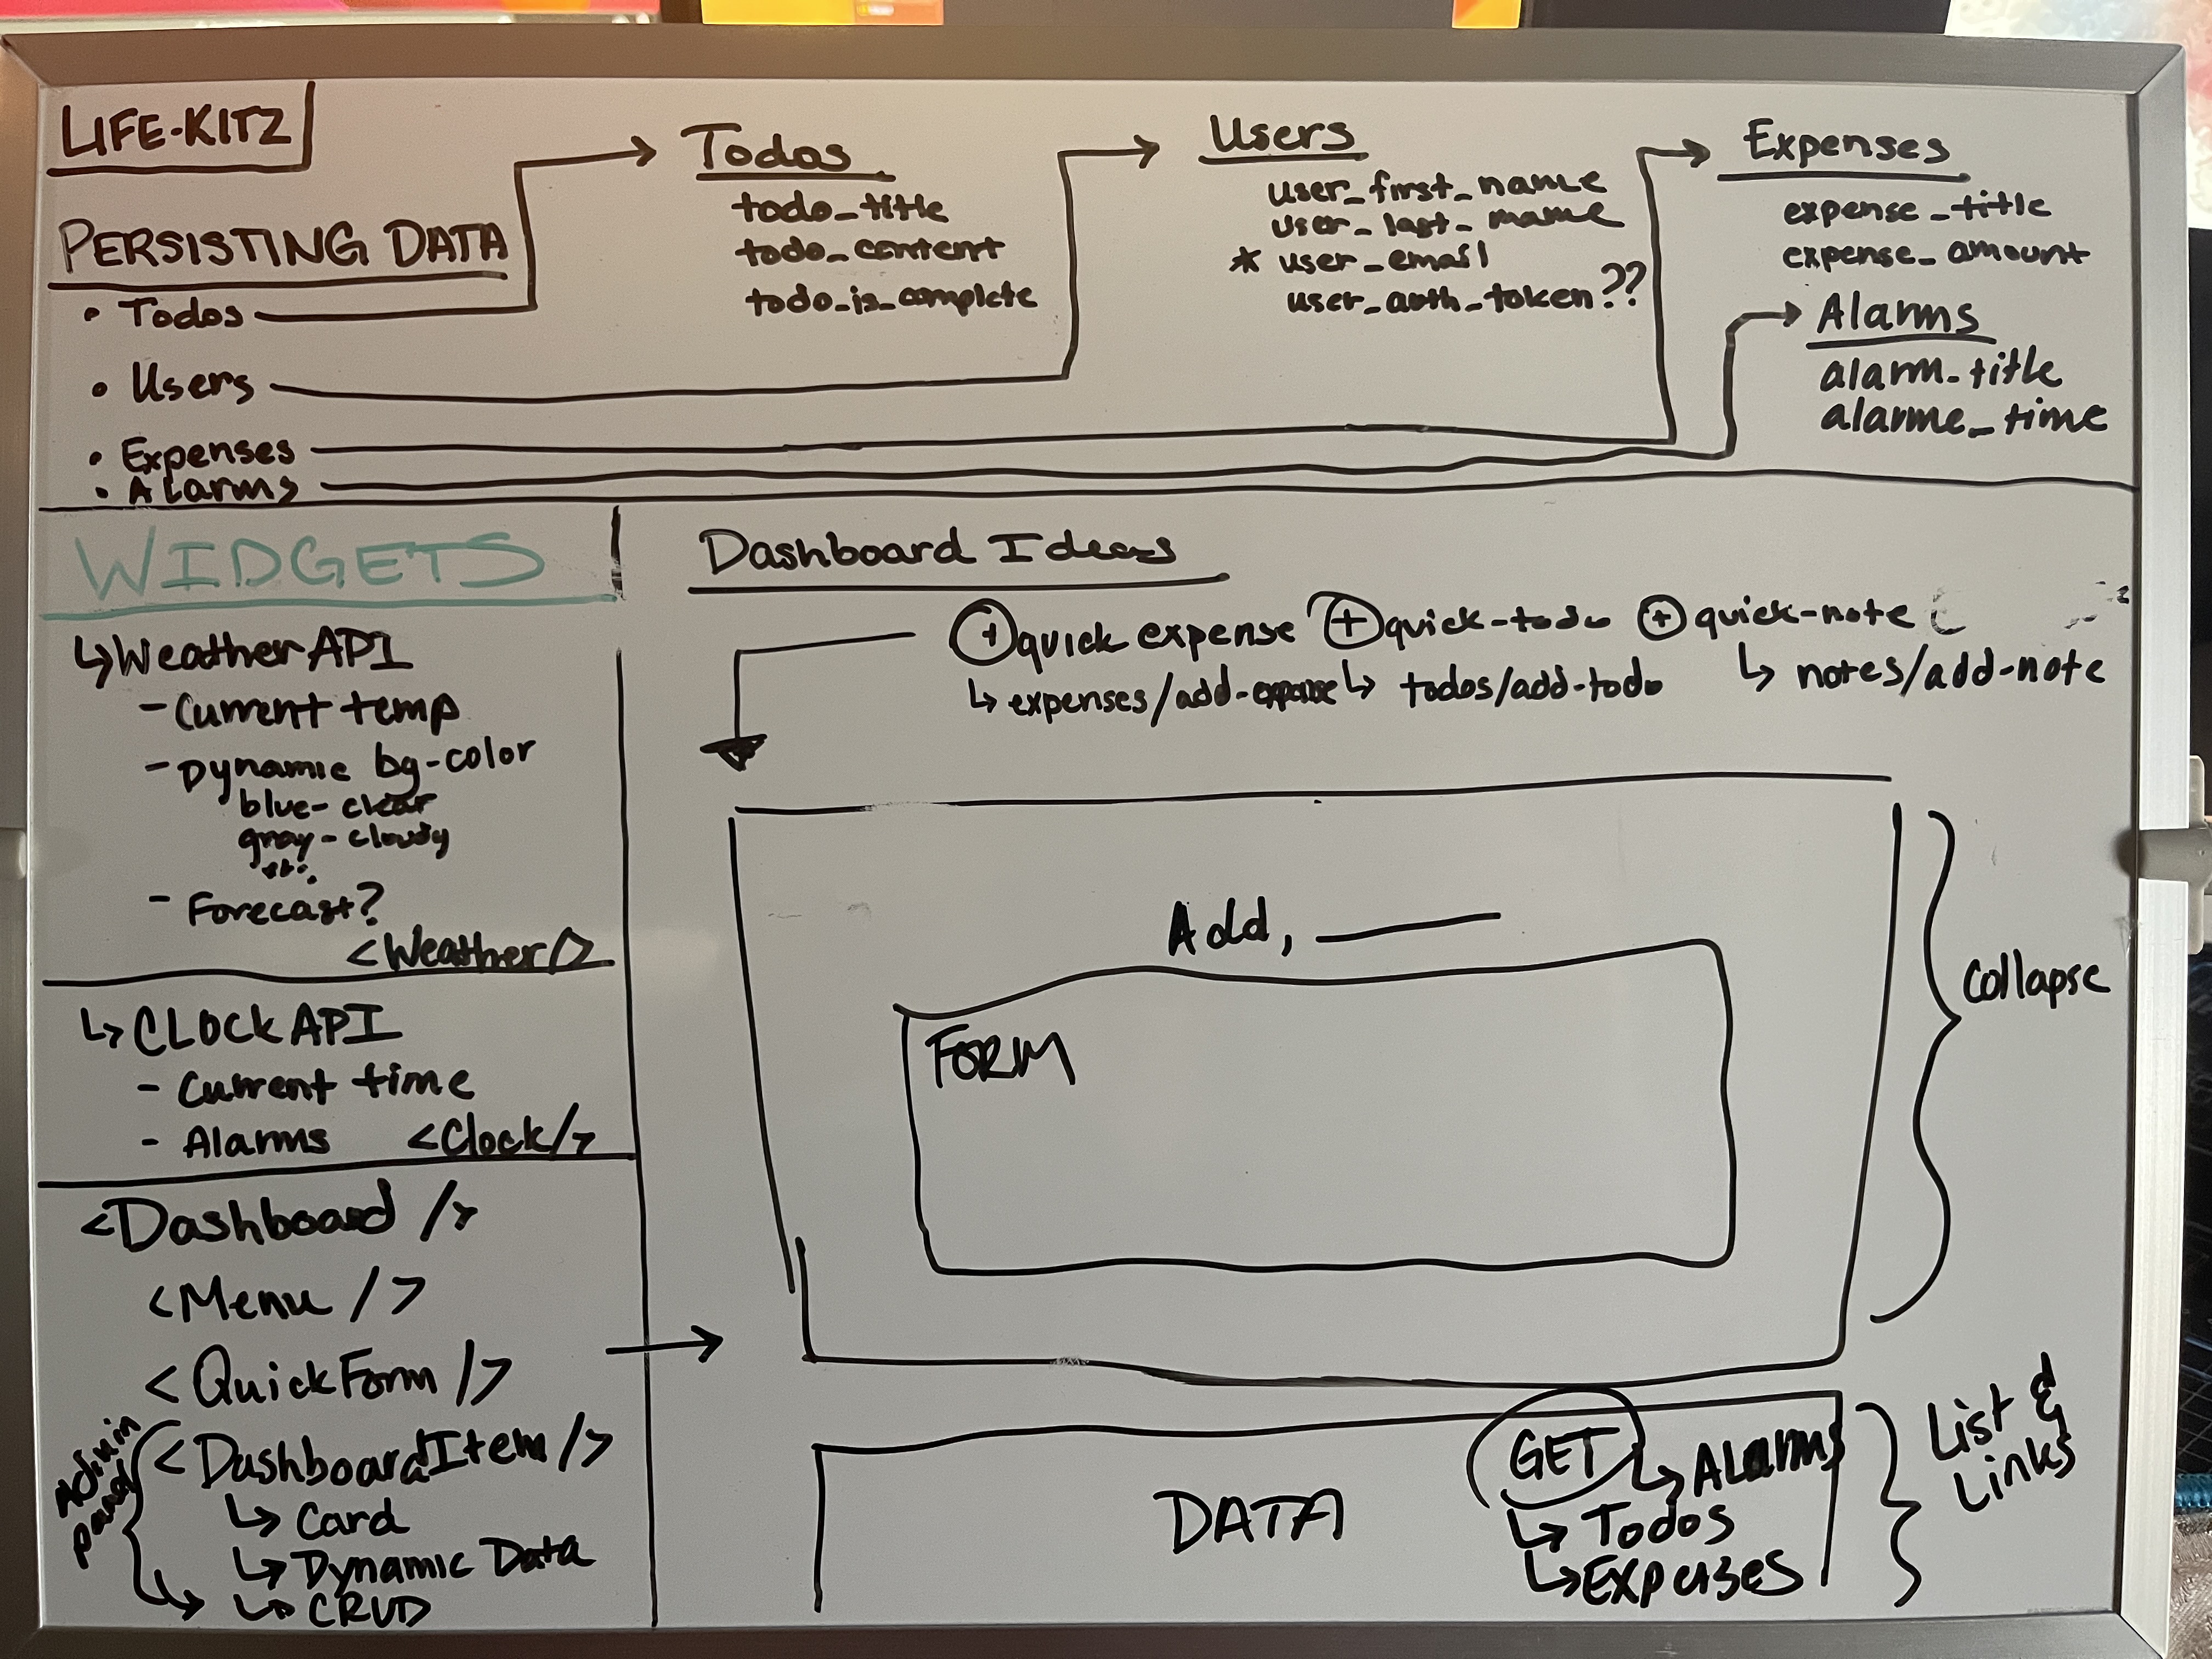 LIFE-KITZ
PERSISTING DATA
• Todos
• Users
• Expenses
• Alarms
Todos
todo_title
todo_content
todo_is_complete
Users
user_first_name
user_last_name
* user_email
user_auth_token??
Expenses
expense_title
expense_amount
Alarms
alarm_title
alarme_time
WIDGETS
↳ Weather API
- Current temp
- Dynamic bg-color
blue - clear
gray - cloudy
- Forecast?
<Weather/>
↳ CLock API
- Current time
- Alarms <Clock/>
<Dashboard />
<Menu />
<QuickForm />
<DashboardItem />
↳ Card
↳ Dynamic Data
↳ CRUD
Admin
panel
Dashboard Ideas
+ quick expense + quick-todo + quick-note
↳ expenses/add-expense ↳ todos/add-todo ↳ notes/add-note
Add, ____
FORM
Collapse
DATA
GET
↳ Alarms
↳ Todos
↳ Expenses
List &
Links